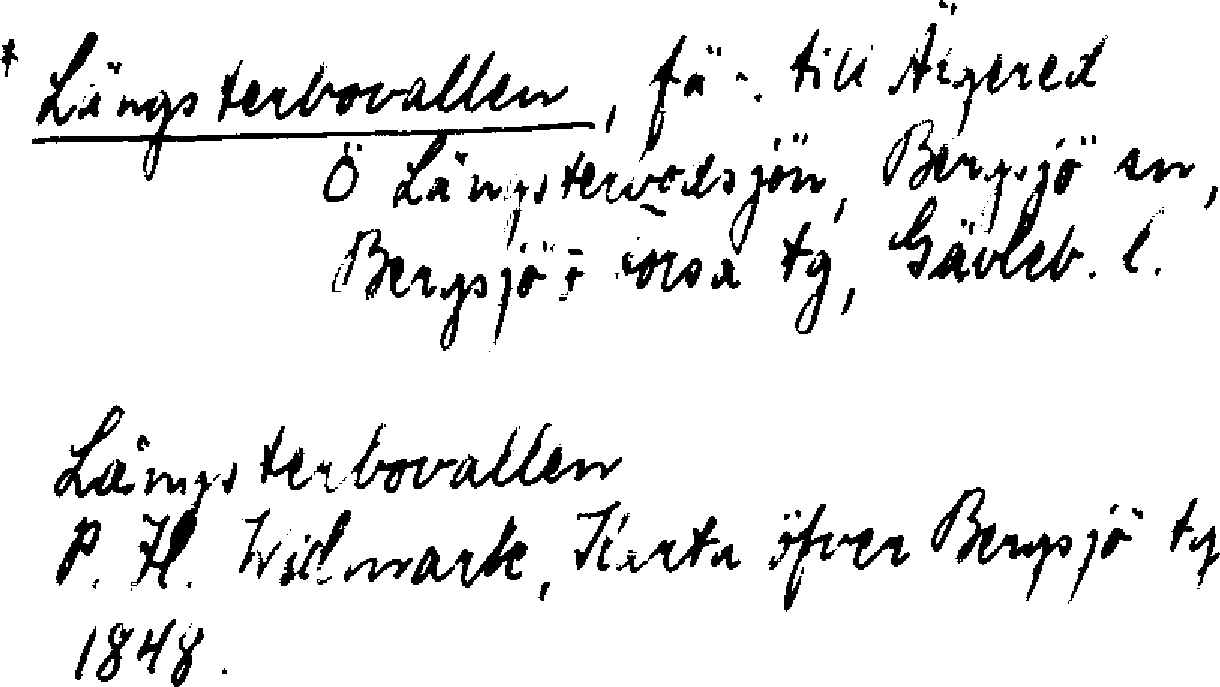 * Längsterbovallen, fä-. till Ärgered
Ö Längsterbodsjön, Bergsjö sn,
Bergsjö o. Forsa tg, Gävleb. l.
Längsterbovallen
P. H. Widmark, Karta öfver Bergsjö tg
1848.